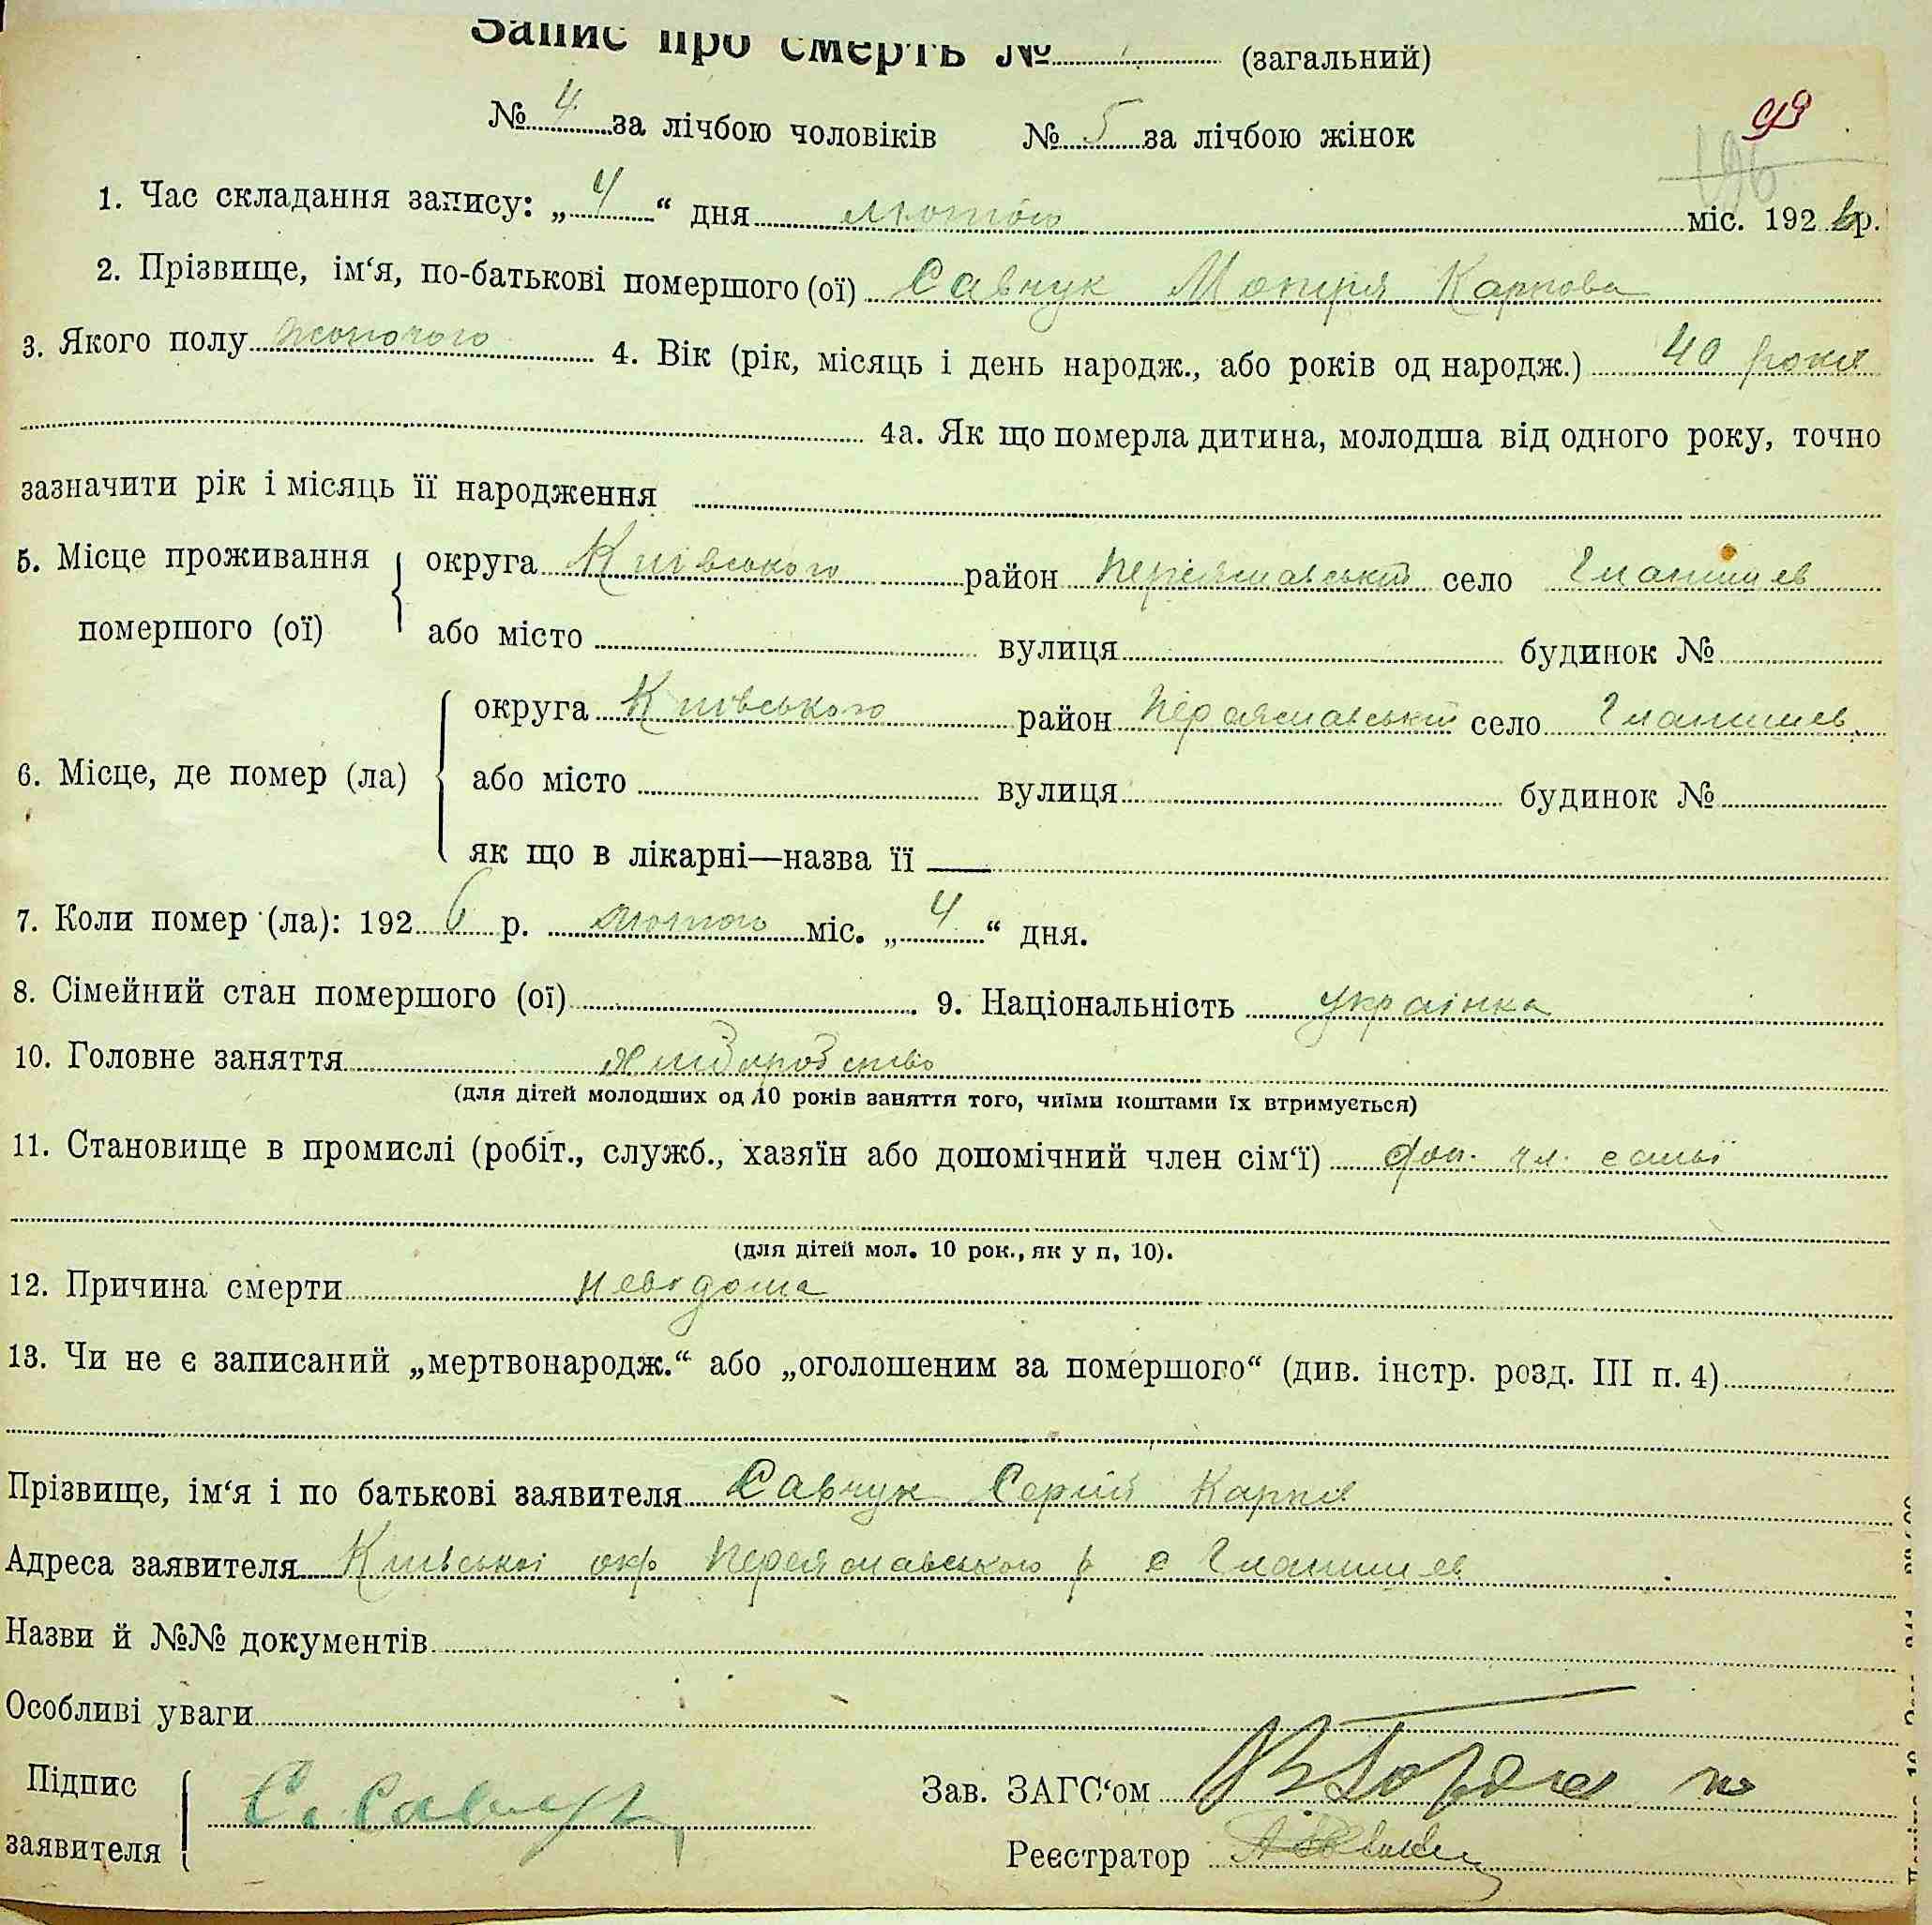 Запис про смерть № (загальний)
№ 4 за лічбою чоловіків № 5 за лічбою жінок
93
196
1. Час складання запису: „ 4 “ дня лютого міс. 192 6 р.
2. Прізвище, ім‘я, по-батькові помершого (ої) Савчук Мотря Карпова
3. Якого полу жіночого 4. Вік (рік, місяць і день народж., або років од народж.) 40 років
4а. Як що померла дитина, молодша від одного року, точно
зазначити рік і місяць її народження
5. Місце проживання помершого (ої) округа Київського район Переяславський село Гланишев
або місто вулиця будинок №
6. Місце, де помер (ла) округа Київського район Переяславський село Гланишев
або місто вулиця будинок №
як що в лікарні—назва її —
7. Коли помер (ла): 192 6 р. лютого міс. „ 4 “ дня.
8. Сімейний стан помершого (ої) . 9. Національність українка
10. Головне заняття хліборобство
(для дітей молодших од 10 років заняття того, чиїми коштами їх втримується)
11. Становище в промислі (робіт., служб., хазяїн або допомічний член сім‘ї) доп. чл. самьї
(для дітей мол. 10 рок., як у п, 10).
12. Причина смерти невідома
13. Чи не є записаний „мертвонародж.“ або „оголошеним за помершого“ (див. інстр. розд. III п. 4)
Прізвище, ім‘я і по батькові заявителя Савчук Сергій Карпів
Адреса заявителя Київської окр Переяславського р с Гланишев
Назви й №№ документів
Особливі уваги
Підпис заявителя С. Савчук
Зав. ЗАГС‘ом
Реєстратор